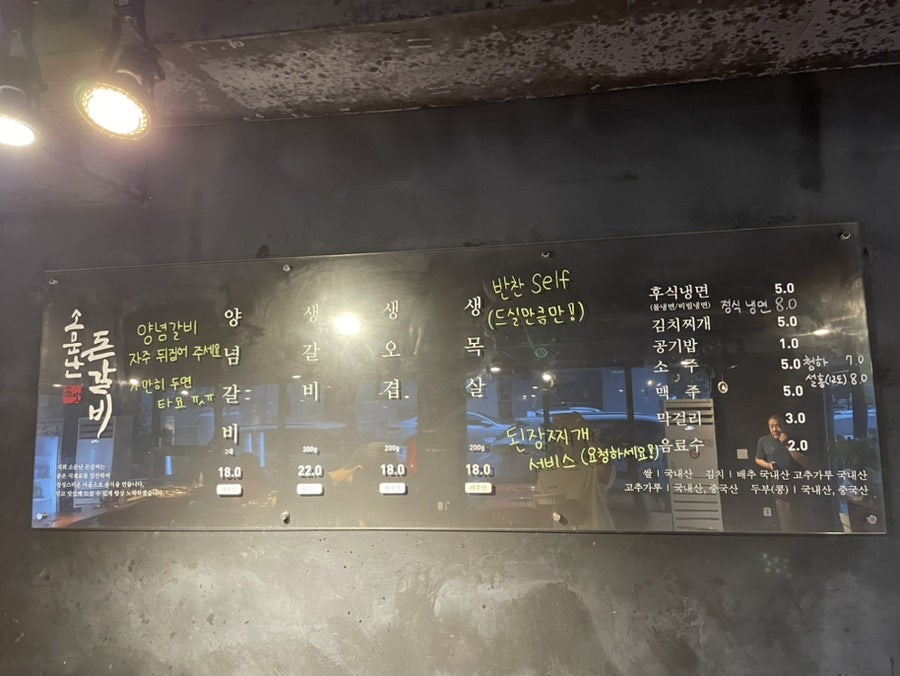 소문난
돈갈비
양념갈비
자주 뒤집어 주세요
가만히 두면
타요 ㅠ.ㅠ
양념갈비
18.0
생갈비
300g
22.0
생오겹
200g
18.0
생목살
200g
18.0
제주산
반찬 Self
(드실만큼만!)
된장찌개
서비스 (요청하세요!)
후식냉면 5.0
(물냉면/비빔냉면) 정식 냉면 8.0
김치찌개 5.0
공기밥 1.0
소 주 5.0 청하 7.0
설흘(12도) 8.0
맥 주 5.0
막걸리 3.0
음료수 2.0
쌀 | 국내산 김치 | 배추 국내산 고추가루 국내산
고추가루 | 국내산, 중국산 두부(콩) | 국내산, 중국산